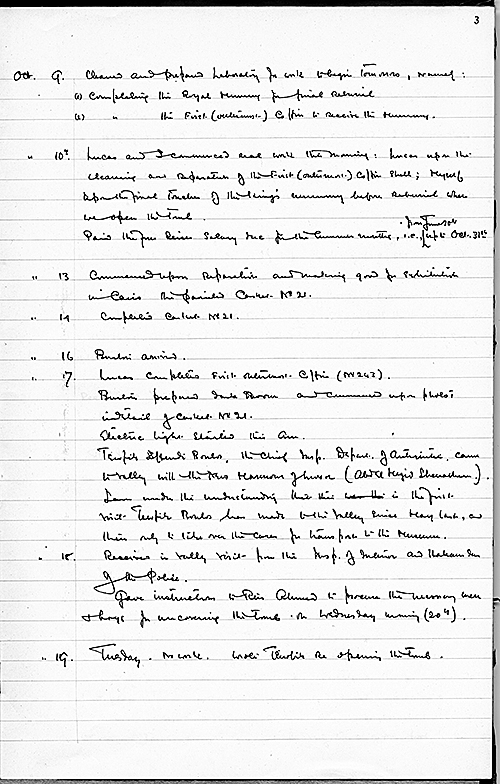 3
Oct. 9. Cleaned and prepared Laboratory for work to begin tomorrow, namely:
(a) Completing the Royal mummy for final reburial
(b) " the First (outermost) Coffin to receive the mummy.
" 10th. Lucas and I commenced real work this morning: Lucas upon the
cleaning and reparation of the First (outermost) Coffin Shell; myself
upon the final touches of the King's mummy before reburial when
we open the tomb.
Paid the four Reises Salary due for the summer months, i.e. from up to Oct. 31st
" 13 Commenced upon reparation and making good for exhibition
in Cairo the painted Casket No 21.
" 14 Completed Casket No 21.
" 16 Burton arrived.
" 17. Lucas completed First outermost Coffin (No 243).
Burton prepared Dark Room and commenced upon photos
in detail of casket No 21.
Electric light started this am.
Tewfik Effendi Boulos, the Chief Insp. Depart. of Antiquities, came
to valley with the new Mamour of Luxor (Abd el Megid).
I am under the understanding that this is the first
visit Tewfik Boulos has made to the Valley since May last, and
then only to take over the cases for transport to the Museum.
" 18. Received in Valley visit from the Insp. of Interior and Hakimdar
of the Police.
Gave instructions to Reis Ahmed to procure the necessary men
& boys for uncovering the tomb on Wednesday morning (20th).
" 19. Tuesday. No work. Wrote Tewfik re opening the tomb.